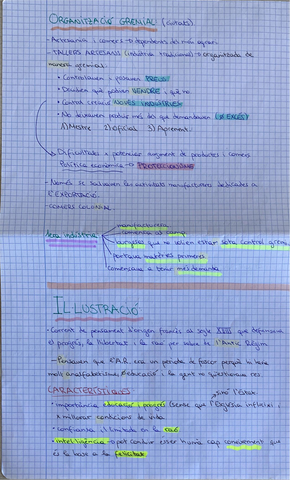 ORGANITZACIÓ GREMIAL (ciutats)
- Artesania i comerç → dependents del món agrari.
- TALLERS ARTESANS (indústria tradicional) → organitzada de
manera gremial:
• Controlaven i posaven PREUS
• Decidien què podien VENDRE i què no
• Control creació NOVES INDÚSTRIES
• No deixaven produir més del que demandaven
1) Mestre 2) Oficial 3) Aprenent.
Dificultats a potenciar augment de productes i comerç
Política econòmica → PROTECCIONISME
- Només se salvaven les activitats manufactureres dedicades a
L'EXPORTACIÓ.
- COMERÇ COLONIAL
1era indústria
manufacturera
comença al camp
burgesos que no volien estar sota control gremi
portava matèries primeres
començava a tenir més demanta
IL·LUSTRACIÓ
- Corrent de pensament d'origen francès al segle XVIII que defensava
el progrés, la llibertat i la raó per sobre de l'Antic Règim
- Pensaven que l'A.R era un període de foscor perquè hi havia
molt analfabetisme, educació i la gent no qüestionava res.
CARACTERÍSTIQUES:
sinó l'Estat
• importància educació i progrés (sense que l'Església influeixi)
x millorar condicions de vida
• confiança il·limitada en la raó.
• intel·ligència → pot conduir ésser humà cap coneixement que
és la base x la felicitat